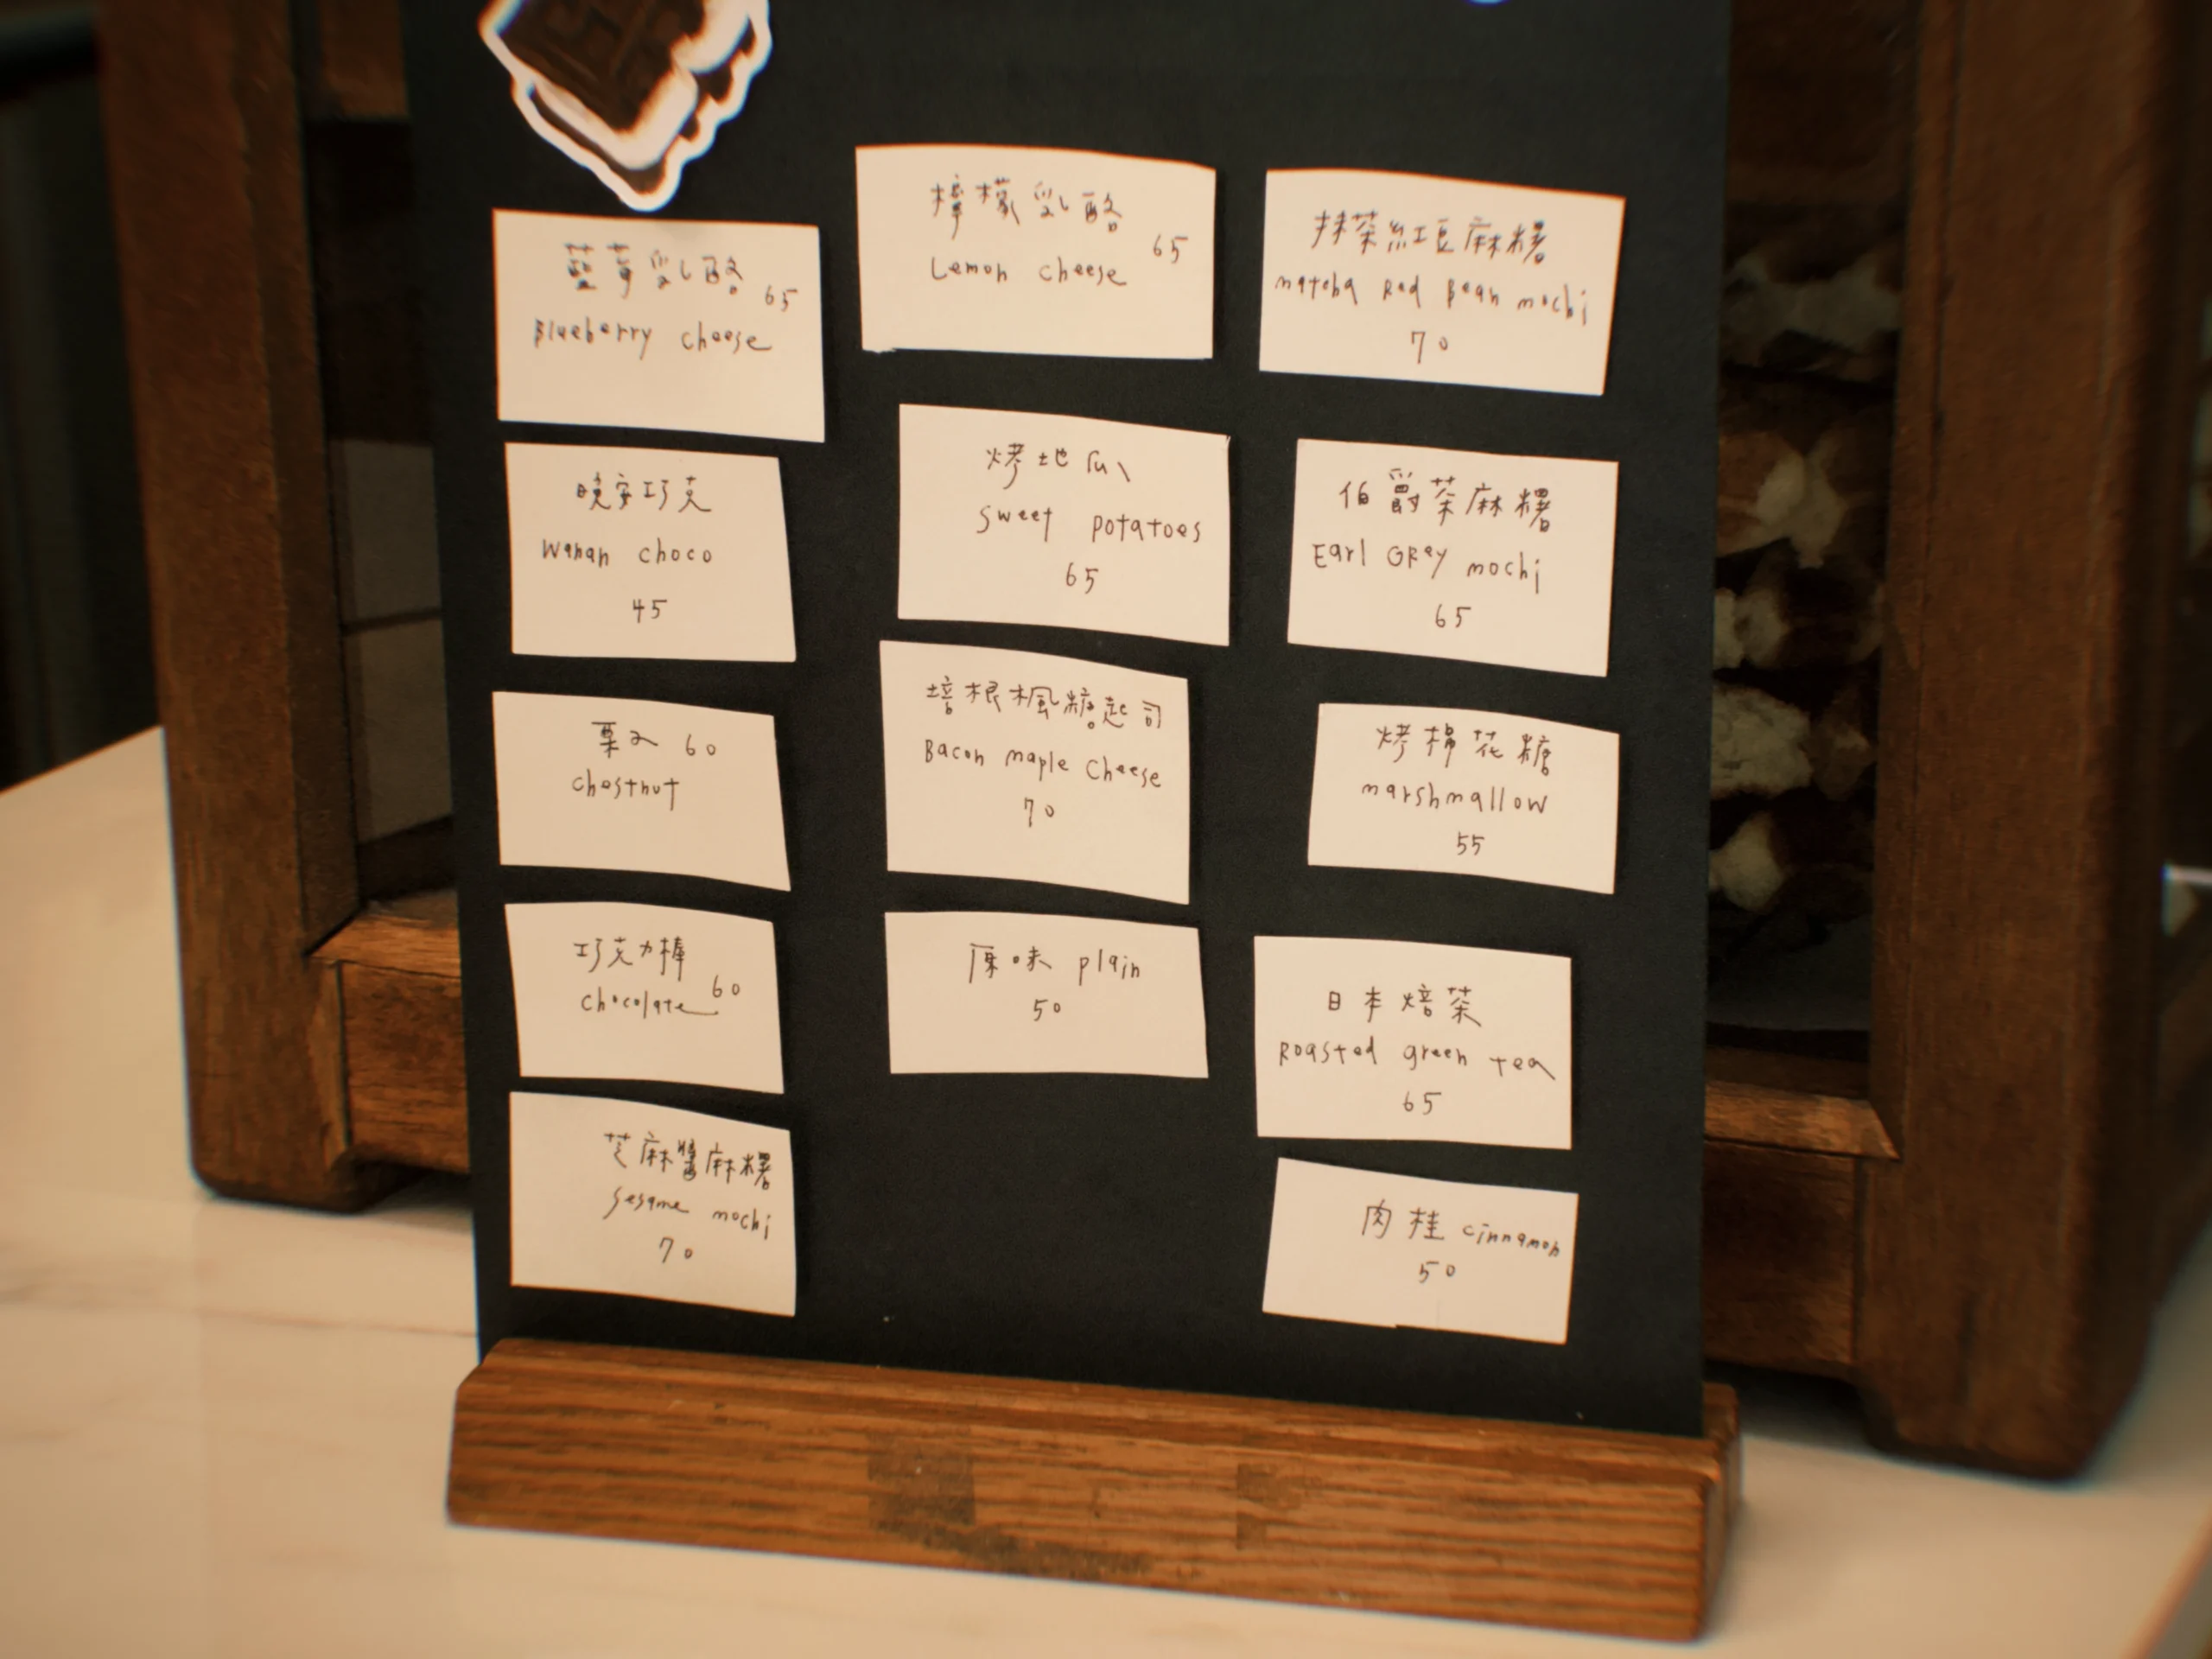 藍莓乳酪 65
Blueberry cheese
晚安巧克
Wanan choco
45
栗子 60
chestnut
巧克力棒
chocolate 60
芝麻醬麻糬
Sesame mochi
70
檸檬乳酪 65
Lemon cheese
烤地瓜
sweet potatoes
65
培根楓糖起司
Bacon maple cheese
70
原味 plain
50
抹茶紅豆麻糬
matcha Red Bean mochi
70
伯爵茶麻糬
Earl GRey mochi
65
烤棉花糖
marshmallow
55
日本焙茶
Roasted green tea
65
肉桂 cinnamon
50